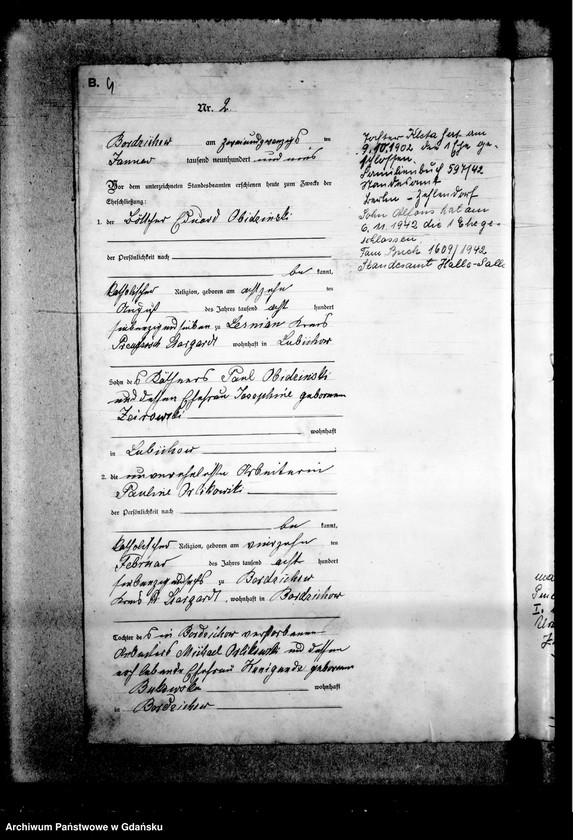 B.
Nr. 2.
Bordzichow am zweiundzwanzigsten
Januar tausend neunhundert und neun
Vor dem unterzeichneten Standesbeamten erschienen heute zum Zwecke der
Eheschließung:
1. der Böttcher Eduard Obidzinski
der Persönlichkeit nach
be kannt,
katholischer Religion, geboren am achtzehn ten
August des Jahres tausend acht hundert
siebenzigundsieben zu Lernian Kreis
Preußisch Stargardt wohnhaft in Lubichow
Sohn des Käthners Paul Obidzinski
und dessen Ehefrau Josephine geborenen
wohnhaft
in Lubichow
2. die unverehelichte Arbeiterin
Pauline Orlikowski
der Persönlichkeit nach
be kannt,
katholischer Religion, geboren am vierzehn ten
Februar des Jahres tausend acht hundert
siebenzigundsechs zu Bordzichow
Kreis Pr Stargardt, wohnhaft in Bordzichow
Tochter des in Bordzichow verstorbenen
Arbeiters Michael Orlikowski und dessen
noch lebende Ehefrau Kunigunde geborenen
wohnhaft
in Bordzichow
Tochter hat am
9.10.1902 die 1 Ehe ge-
schlossen.
Familienbuch 597/42
Standesamt
Berlin - Zehlendorf
Sohn Alfons hat am
6. 11. 1942 die 1 Ehe ge-
schlossen.
Fam Buch 1609/1942
Standesamt Halle-Saale
Archiwum Państwowe w Gdańsku